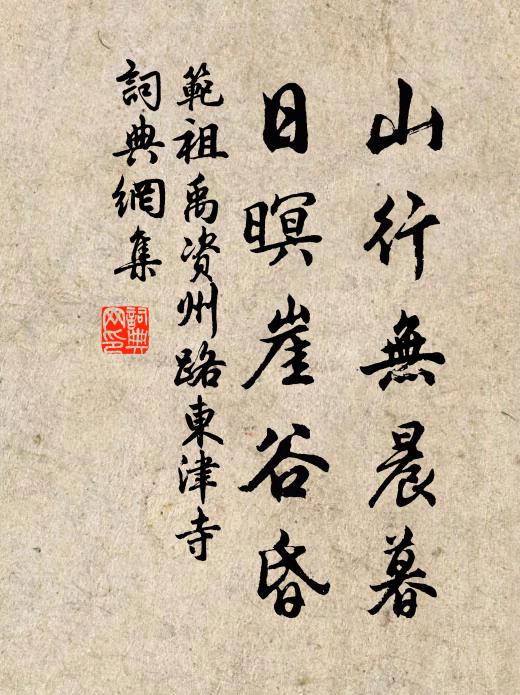 山行無晨暮
日暝崖谷昏
範祖禹資州路東津寺
詞典網集
詞典
网印